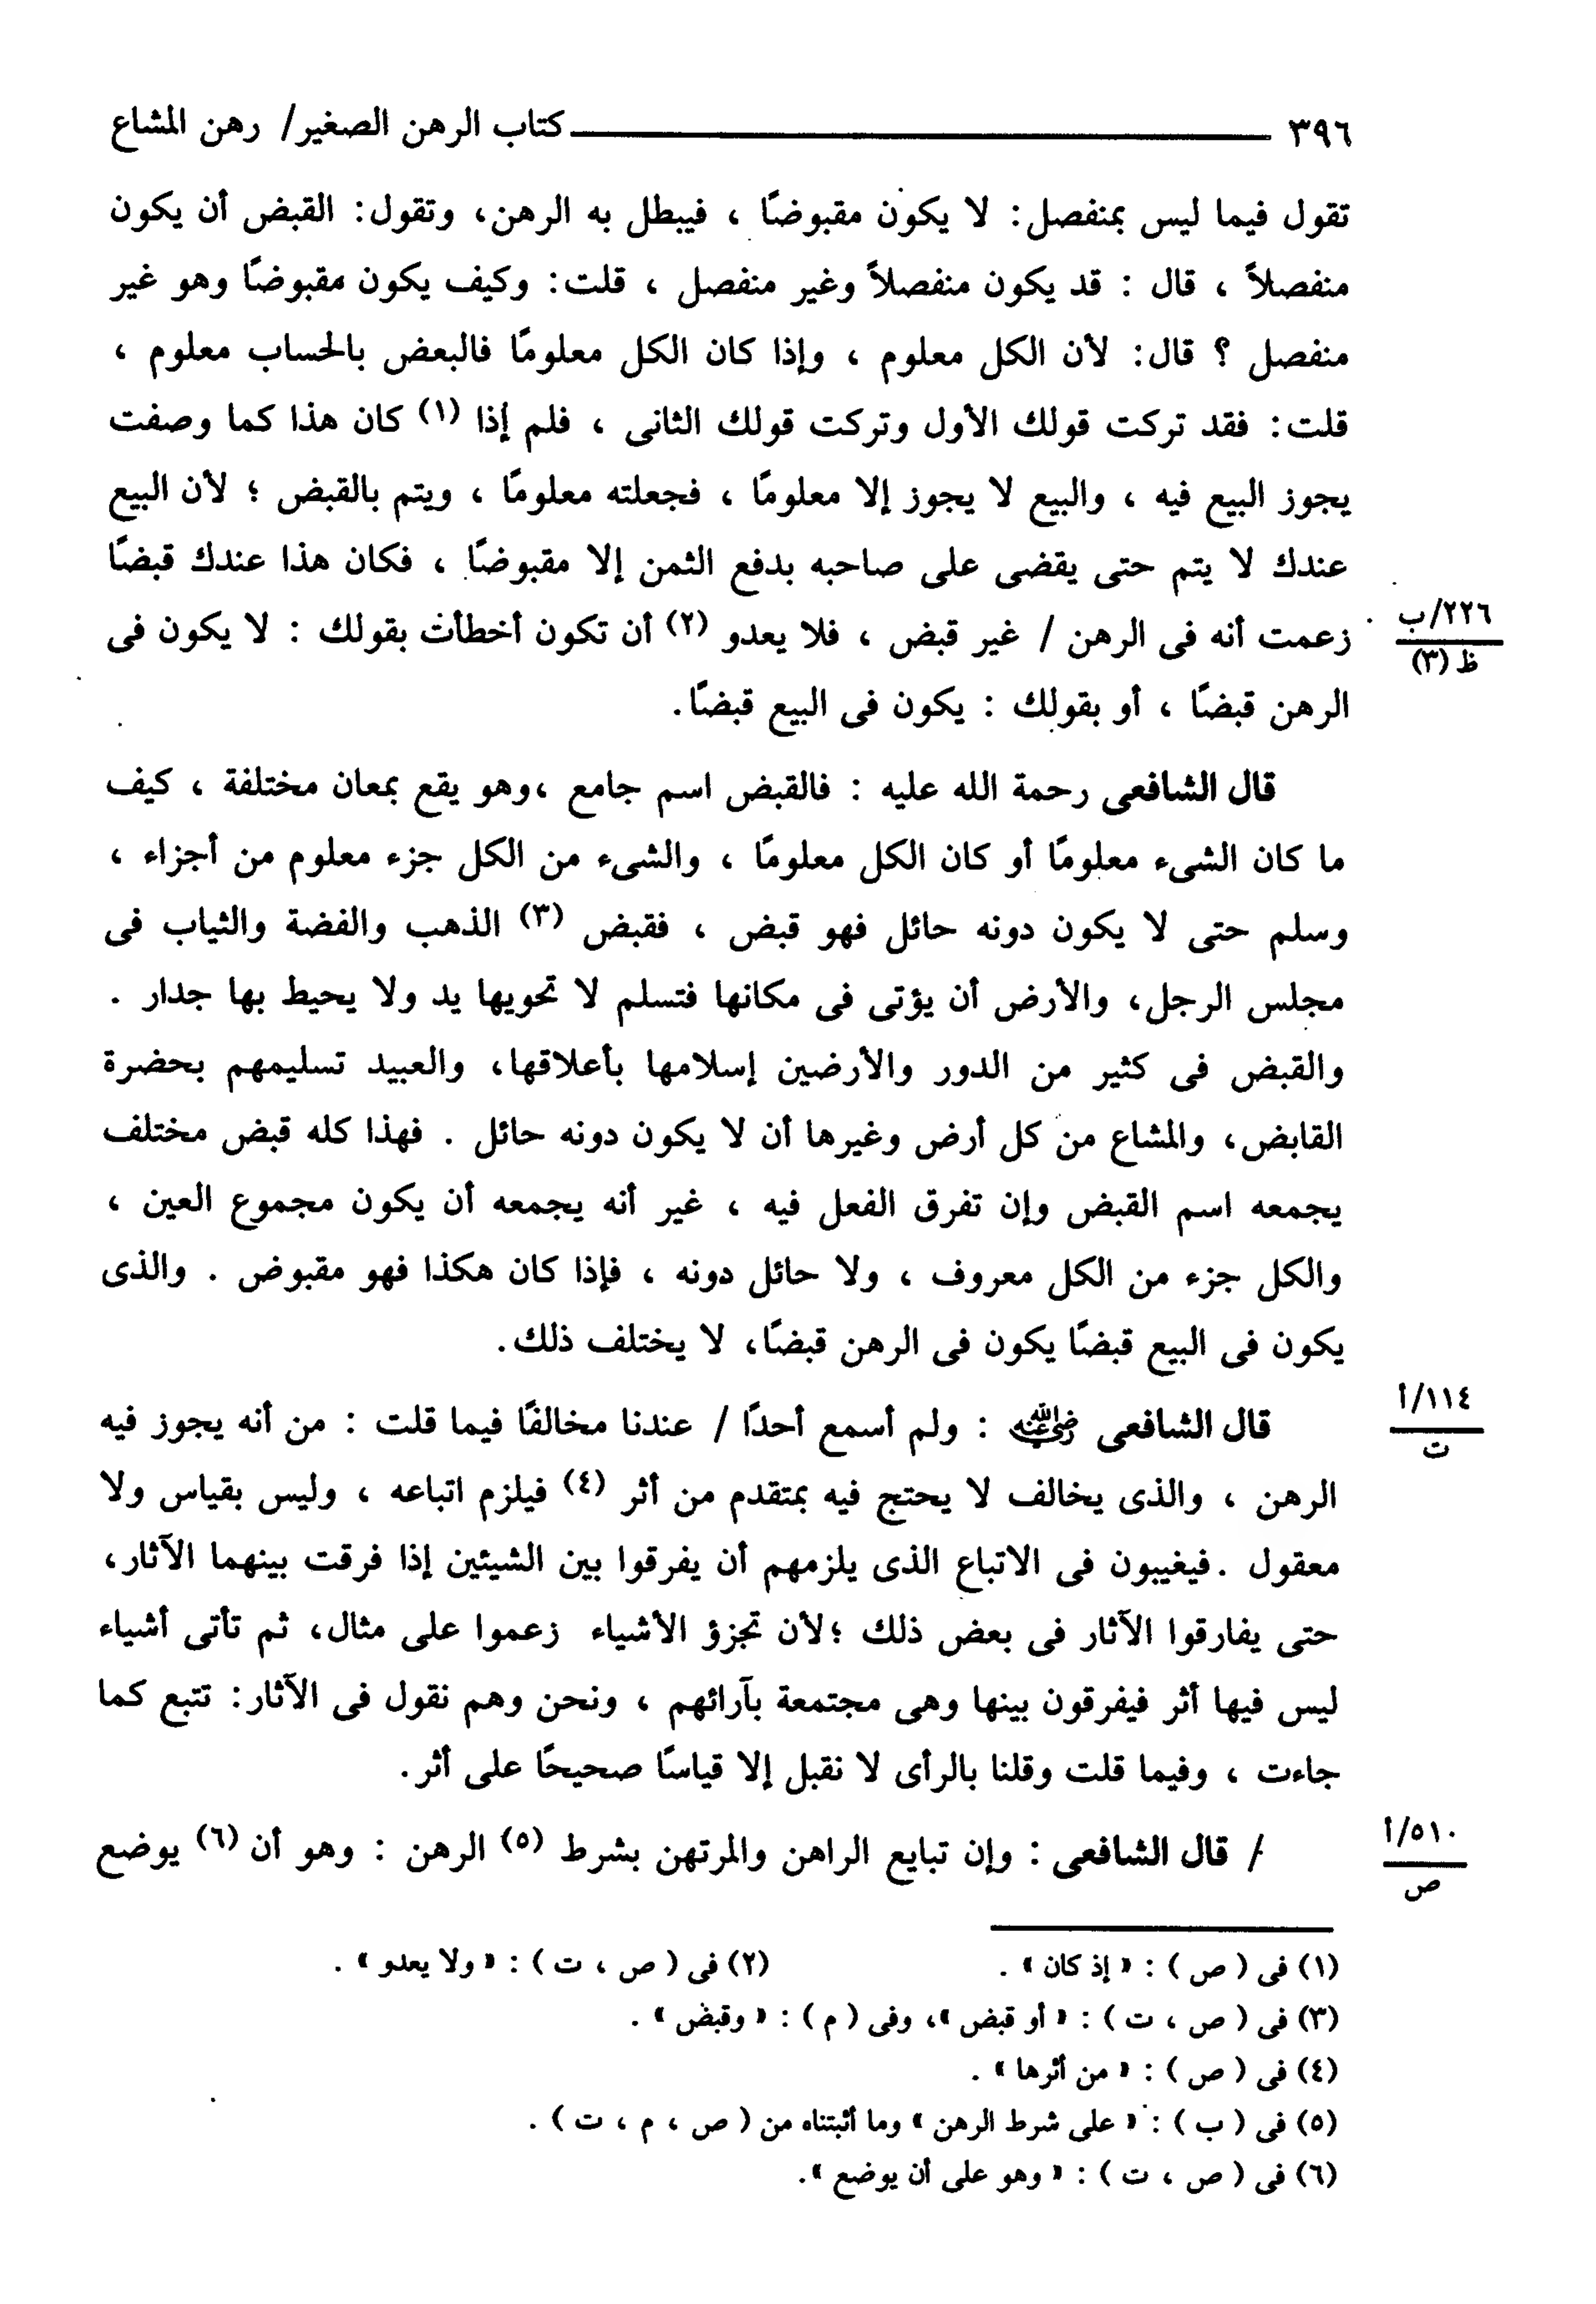 ٣٩٦ كتاب الرهن الصغير/ رهن المشاع
تقول فيما ليس بمنفصل: لا يكون مقبوضًا ، فيبطل به الرهن، وتقول: القبض أن يكون
منفصلاً ، قال : قد يكون منفصلاً وغير منفصل ، قلت: وكيف يكون مقبوضًا وهو غير
منفصل ؟ قال: لأن الكل معلوم ، وإذا كان الكل معلومًا فالبعض بالحساب معلوم ،
قلت: فقد تركت قولك الأول وتركت قولك الثانى ، فلم إذا (١) كان هذا كما وصفت
يجوز البيع فيه ، والبيع لا يجوز إلا معلومًا ، فجعلته معلومًا ، ويتم بالقبض ؛ لأن البيع
عندك لا يتم حتى يقضى على صاحبه بدفع الثمن إلا مقبوضًا ، فكان هذا عندك قبضًا
زعمت أنه فى الرهن / غير قبض ، فلا يعدو (٢) أن تكون أخطأت بقولك : لا يكون فى
٢٢٦/ب
ظ (٣)
الرهن قبضًا ، أو بقولك : يكون فى البيع قبضًا.
قال الشافعى رحمة الله عليه : فالقبض اسم جامع ،وهو يقع بمعان مختلفة ، كيف
ما كان الشىء معلومًا أو كان الكل معلومًا ، والشىء من الكل جزء معلوم من أجزاء ،
وسلم حتى لا يكون دونه حائل فهو قبض ، فقبض (٣) الذهب والفضة والثياب فى
مجلس الرجل، والأرض أن يؤتى فى مكانها فتسلم لا تحويها يد ولا يحيط بها جدار .
والقبض فى كثير من الدور والأرضين إسلامها بأعلاقها، والعبيد تسليمهم بحضرة
القابض، والمشاع من كل أرض وغيرها أن لا يكون دونه حائل . فهذا كله قبض مختلف
يجمعه اسم القبض وإن تفرق الفعل فيه ، غير أنه يجمعه أن يكون مجموع العين ،
والكل جزء من الكل معروف ، ولا حائل دونه ، فإذا كان هكذا فهو مقبوض . والذى
يكون فى البيع قبضًا يكون فى الرهن قبضًا، لا يختلف ذلك.
قال الشافعى رضي الله عنه : ولم أسمع أحدًا / عندنا مخالفًا فيما قلت : من أنه يجوز فيه
١١٤/أ
ت
الرهن ، والذى يخالف لا يحتج فيه بمتقدم من أثر (٤) فيلزم اتباعه ، وليس بقياس ولا
معقول . فيغيبون فى الاتباع الذى يلزمهم أن يفرقوا بين الشيئين إذا فرقت بينهما الآثار،
حتى يفارقوا الآثار فى بعض ذلك ؛لأن تجزؤ الأشياء زعموا على مثال، ثم تأتى أشياء
ليس فيها أثر فيفرقون بينها وهى مجتمعة بآرائهم ، ونحن وهم نقول فى الآثار: تتبع كما
جاءت ، وفيما قلت وقلنا بالرأى لا نقبل إلا قياسًا صحيحًا على أثر.
/ قال الشافعى : وإن تبايع الراهن والمرتهن بشرط (٥) الرهن : وهو أن (٦) يوضع
٥١٠/أ
ص
(١) فى ( ص ) : « إذ كان » . (٢) فى ( ص ، ت ) : « ولا يعدو » .
(٣) فى ( ص ، ت ) : « أو قبض »، وفى ( م ) : « وقبض » .
(٤) فى ( ص ) : « من أثرها » .
(٥) فى ( ب ) : « على شرط الرهن » وما أثبتناه من ( ص ، م ، ت ) .
(٦) فى ( ص ، ت ) : « وهو على أن يوضع ».